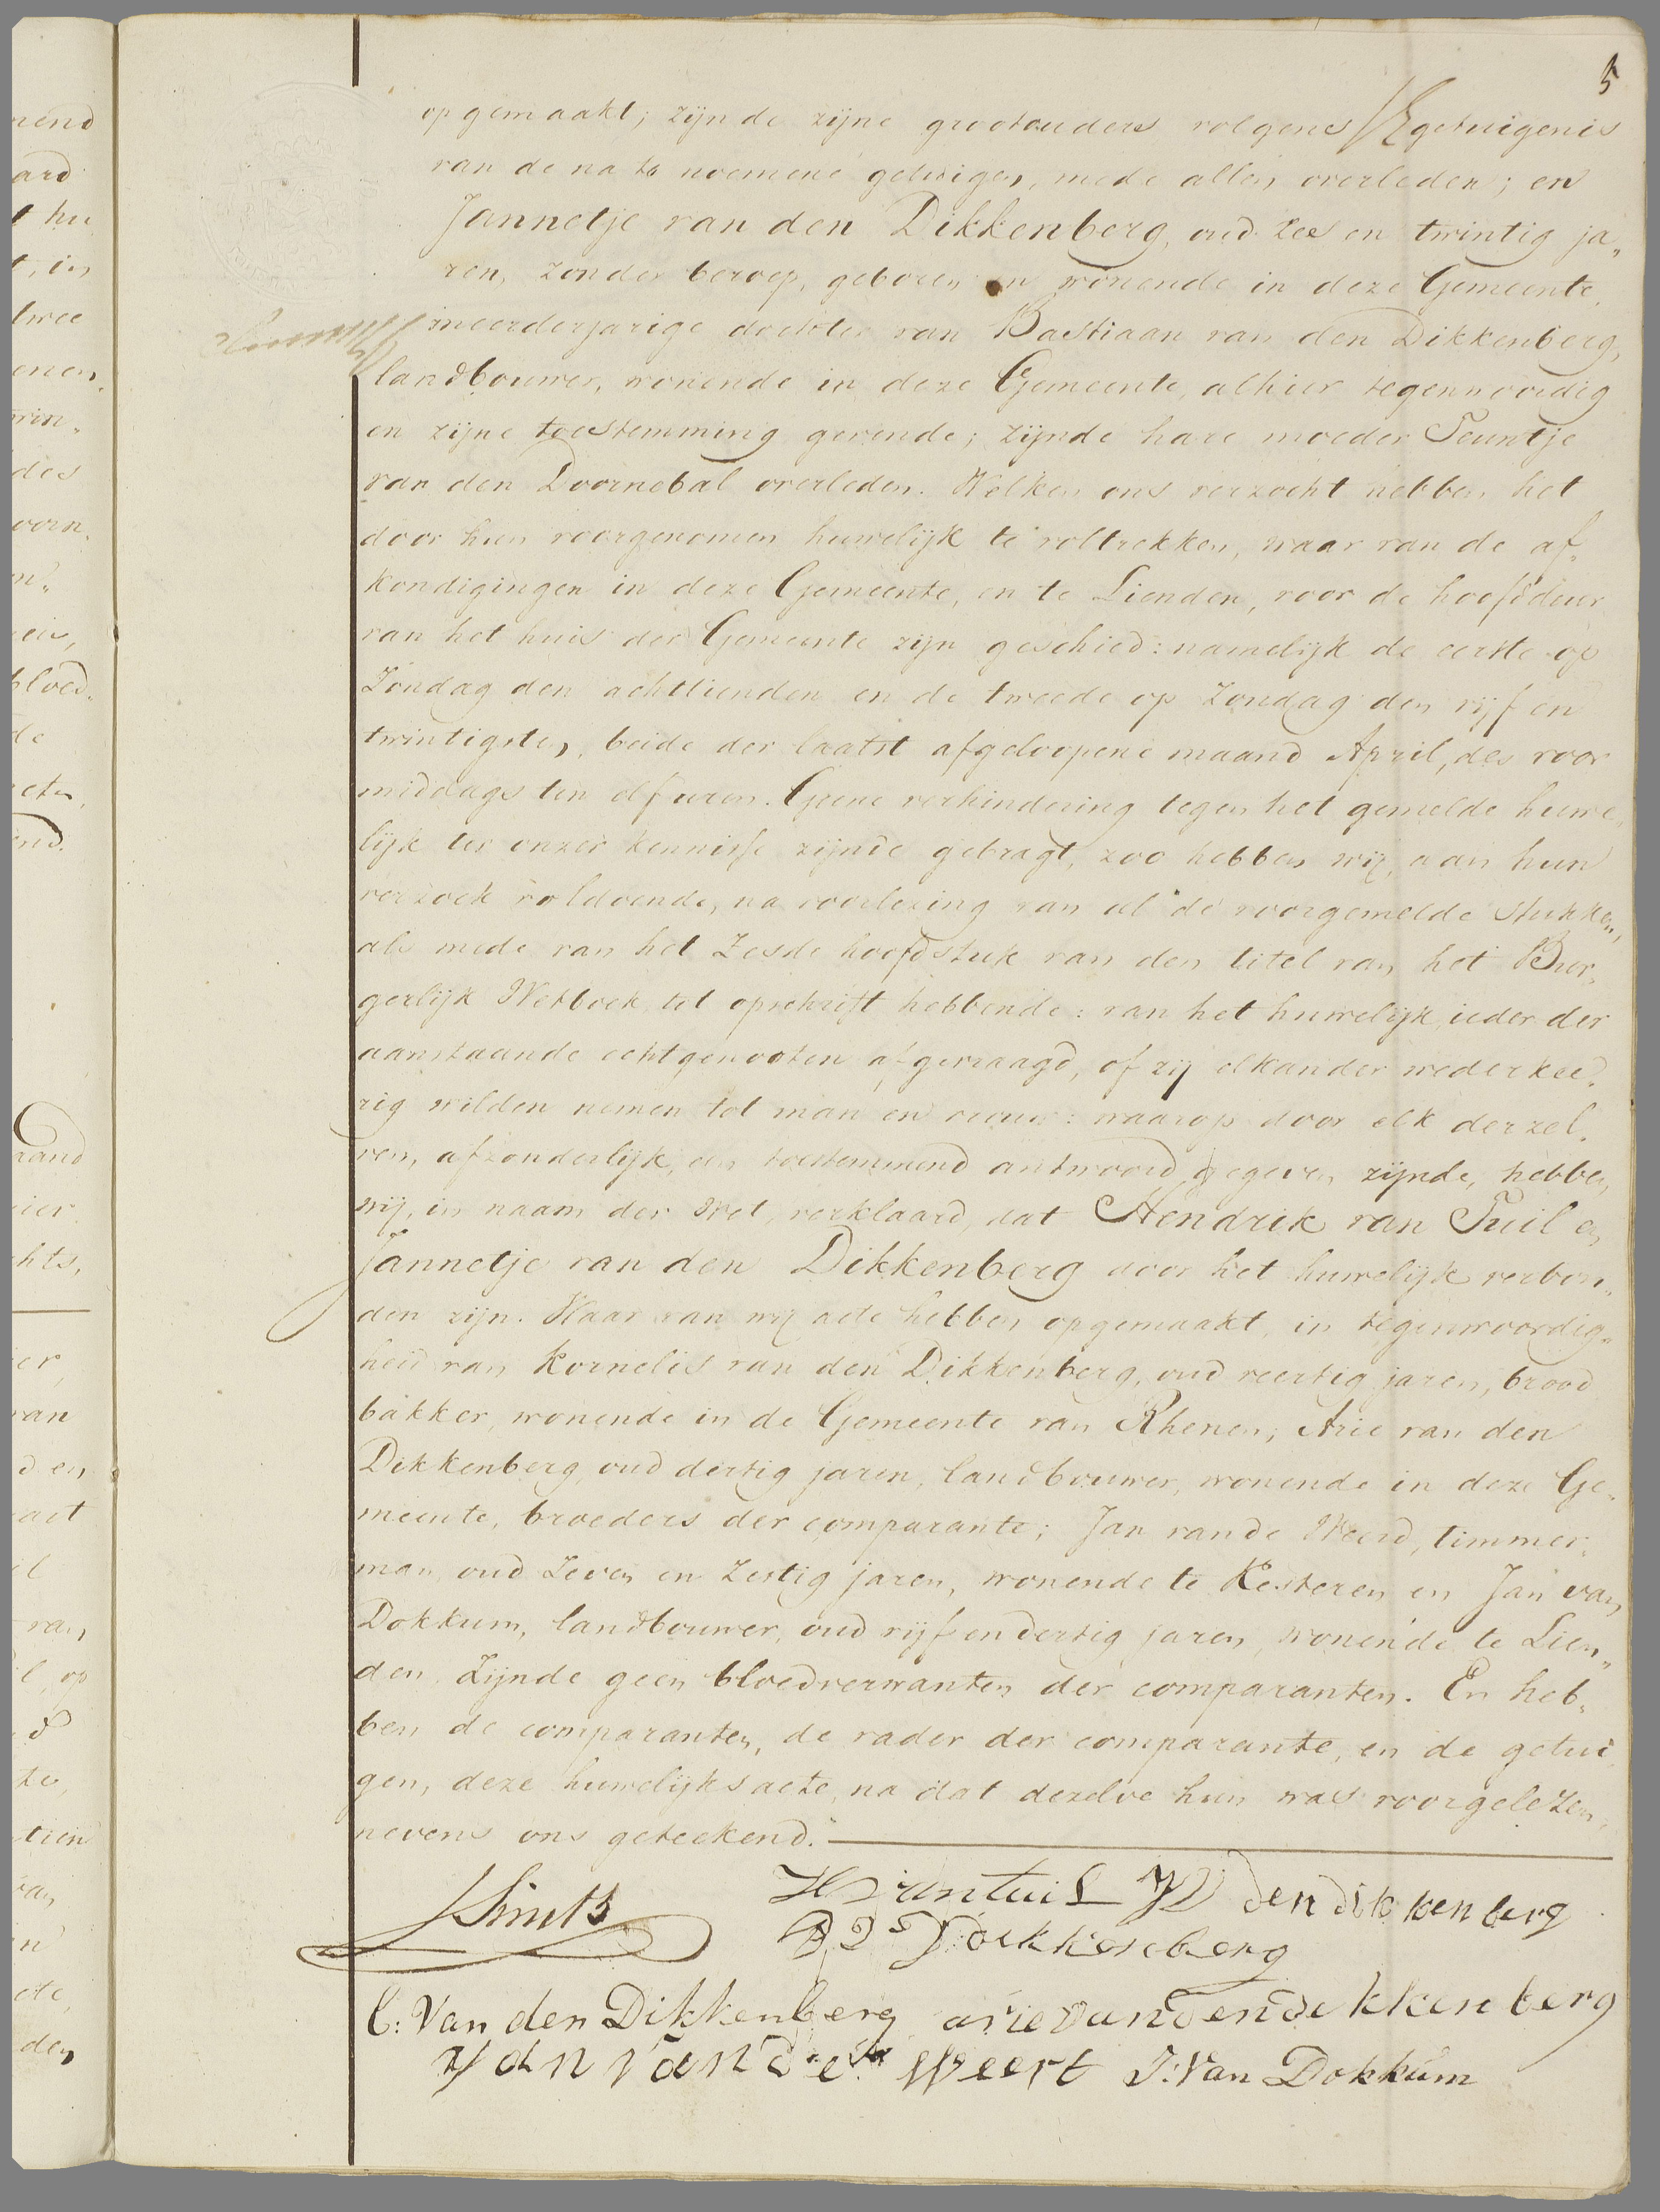 5
opgemaakt; zijnde zijne grootouders volgens getuigenis
van de na te noemene getuigen, mede allen overleden; en
Jannetje van den Dikkenberg, oud zes en twintig ja„
ren, zonder beroep, geboren en wonende in deze Gemeente,
meerderjarige dochter van Bastiaan van den Dikkenberg,
landbouwer, wonende in deze Gemeente, alhier tegenwoordig
en zijne toestemming gevende; zijnde hare moeder Teuntje
van den Doornebal overleden. Welken ons verzocht hebben het
door hun voorgenomen huwelijk te voltrekken, waar van de af„
kondigingen in deze Gemeente, en te Lienden, voor de hoofddeur
van het huis der Gemeente zijn geschied: namelijk de eerste op
Zondag den achttienden en de tweede op Zondag den vijf en
twintigsten, beide der laatst afgeloopene maand April, des voor
middags ten elf uren. Geene verhindering tegen het gemelde huwe„
lijk ter onzer kennisse zijnde gebragt, zoo hebben wij, aan hun
verzoek voldoende, na voorlezing van al de voorgemelde stukken,
als mede van het Zesde hoofdstuk van den titel van het Bur„
gerlijk Wetboek tot opschrift hebbende: van het huwelijk, ieder der
aanstaande echtgenooten afgevraagd, of zij elkander wederkee„
rig wilden nemen tot man en vrouw: waarop door elk derzel„
ven, afzonderlijk, een toestemmend antwoord gegeven zijnde, hebben
wij, in naam der Wet, verklaard, dat Hendrik van Tuil en
Jannetje van den Dikkenberg door het huwelijk verbon„
den zijn. Waar van wij acte hebben opgemaakt, in tegenwoordig„
heid van Kornelis van den Dikkenberg, oud veertig jaren, brood
bakker, wonende in de Gemeente van Rhenen; Arie van den
Dikkenberg, oud dertig jaren, landbouwer, wonende in deze Ge„
meente, broeders der comparante; Jan van de Weerd, timmer„
man, oud Zeven en Zestig jaren, wonende te Kesteren en Jan van
Dokkum, landbouwer, oud vijf en dertig jaren, wonende te Lien„
den, Zijnde geen bloedverwanten der comparanten. En heb„
ben de comparanten, de vader der comparante, en de getui„
gen, deze huwelijks acte, na dat dezelve hun was voorgelezen,
nevens ons geteekend.
Smits
H vantuil JVD den dikkenberg
Dikkenberg
C: Van den Dikkenberg arie van den dekkenberg
Jan van de Weert J: Van Dokkum